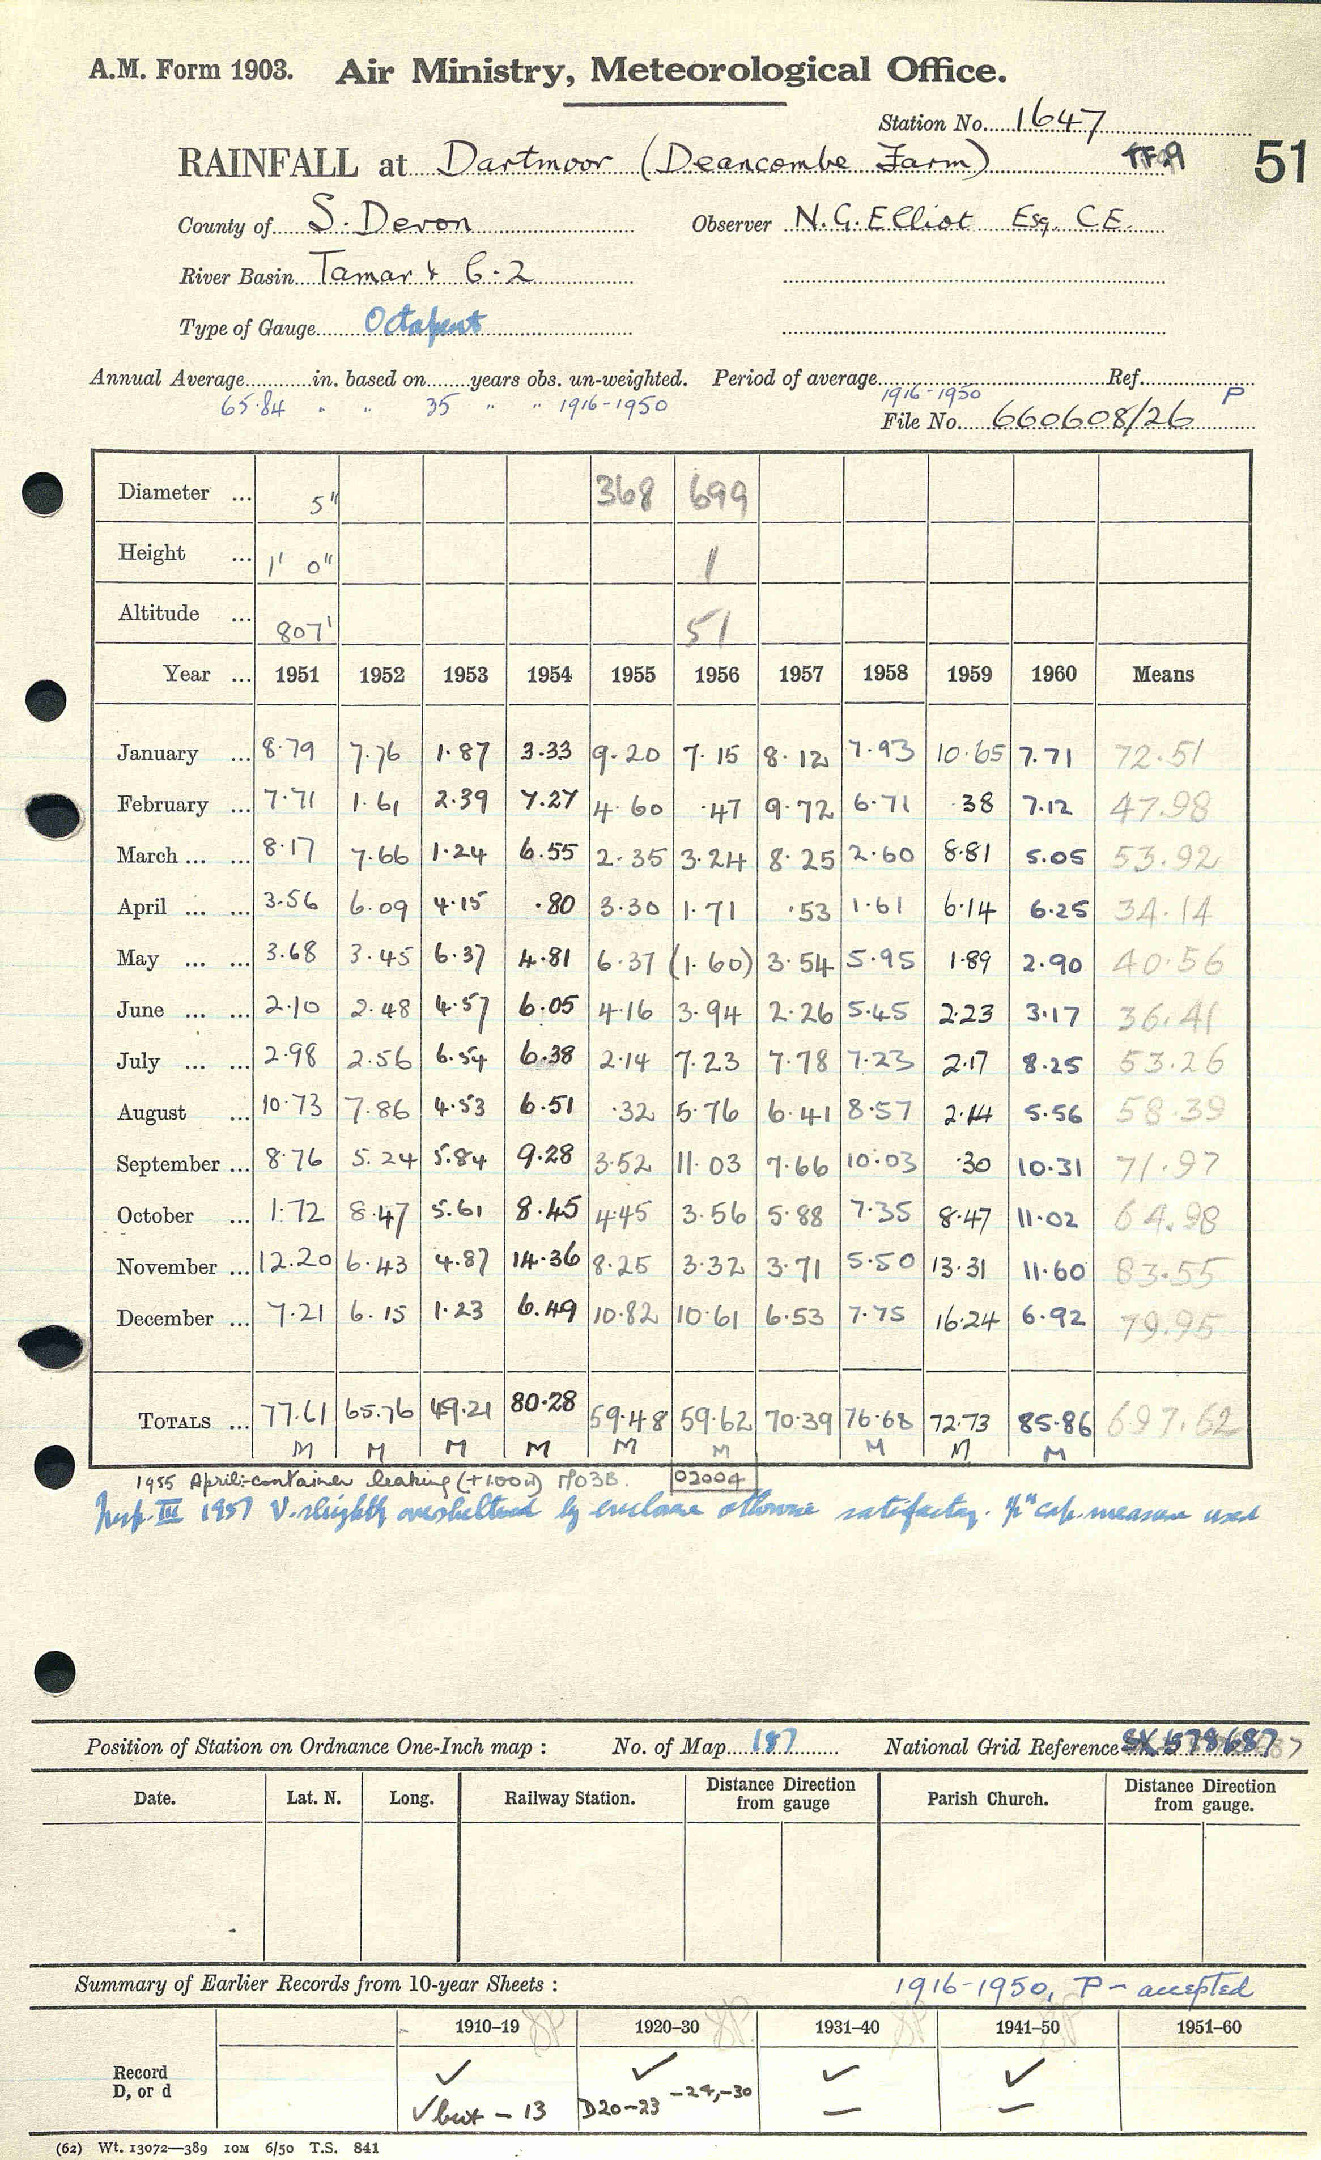 A.M. Form 1903. Air Ministry, Meteorological Office.
Station No. 1647
RAINFALL at Dartmoor (Deancombe Farm) 51
County of S. Devon Observer N.G. Elliot Esq. C.E.
River Basin Tamar & 6.2
Type of Gauge Octapent
Annual Average in. based on years obs. un-weighted. Period of average 1916-1950 Ref. P
65.84 " " 35 " " 1916-1950
File No. 660608/26
Diameter ... 5" 368 699
Height ... 1' 0" 1
Altitude ... 807' 51
Year ... 1951 1952 1953 1954 1955 1956 1957 1958 1959 1960 Means
January ... 8.79 7.76 1.87 3.33 9.20 7.15 8.12 7.93 10.65 7.71 72.51
February ... 7.71 1.61 2.39 7.27 4.60 .47 9.72 6.71 .38 7.12 47.98
March ... ... 8.17 7.66 1.24 6.55 2.35 3.24 8.25 2.60 8.81 5.05 53.92
April ... ... 3.56 6.09 4.15 .80 3.30 1.71 .53 1.61 6.14 6.25 34.14
May ... ... 3.68 3.45 6.37 4.81 6.37 (1.60) 3.54 5.95 1.89 2.90 40.56
June ... ... 2.10 2.48 4.57 6.05 4.16 3.94 2.26 5.45 2.23 3.17 36.41
July ... ... 2.98 2.56 6.54 6.38 2.14 7.23 7.78 7.23 2.17 8.25 53.26
August ... 10.73 7.86 4.53 6.51 .32 5.76 6.41 8.57 2.14 5.56 58.39
September ... 8.76 5.24 5.84 9.28 3.52 11.03 7.66 10.03 .30 10.31 71.97
October ... 1.72 8.47 5.61 8.45 4.45 3.56 5.88 7.35 8.47 11.02 64.98
November ... 12.20 6.43 4.87 14.36 8.25 3.32 3.71 5.50 13.31 11.60 83.55
December ... 7.21 6.15 1.23 6.49 10.82 10.61 6.53 7.75 16.24 6.92 79.95
TOTALS ... 77.61 65.76 49.21 80.28 59.48 59.62 70.39 76.68 72.73 85.86 697.62
M M M M M M M M M
1955 April:-container leaking (+1.00in) MO3B. 02004
Insp. III 1957 V. slightly oversheltered by enclosure otherwise satisfactory. cap. measure used
Position of Station on Ordnance One-Inch map : No. of Map 187 National Grid Reference SX 578687
Date. Lat. N. Long. Railway Station. Distance from gauge Direction Parish Church. Distance from gauge. Direction
Summary of Earlier Records from 10-year Sheets : 1916-1950, P - accepted
1910-19 1920-30 1931-40 1941-50 1951-60
Record ✓ ✓ ✓ ✓
D, or d ✓ but - 13 D20-23 -24,-30 — —
(62) Wt. 13072—389 10M 6/50 T.S. 841